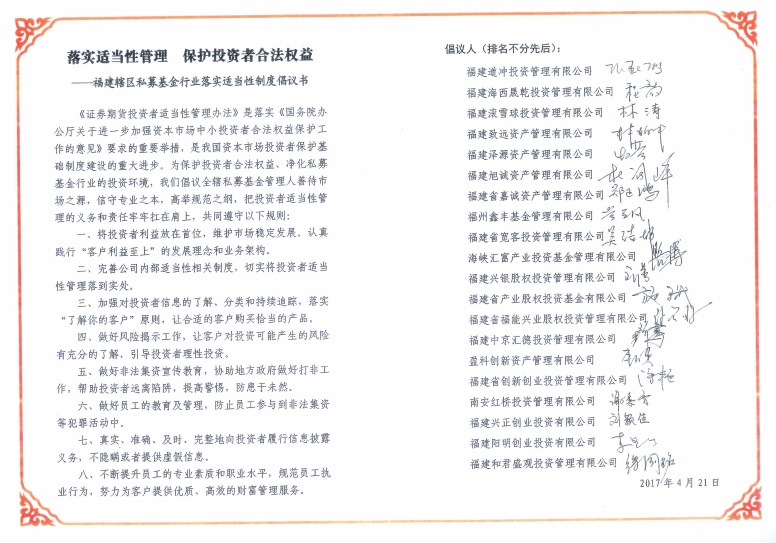 落实适当性管理　保护投资者合法权益
——福建辖区私募基金行业落实适当性制度倡议书
《证券期货投资者适当性管理办法》是落实《国务院办
公厅关于进一步加强资本市场中小投资者合法权益保护工
作的意见》要求的重要举措，是我国资本市场投资者保护基
础制度建设的重大进步。为保护投资者合法权益、净化私募
基金行业的投资环境，我们倡议全辖私募基金管理人善待市
场之源，信守专业之本，高举规范之纲，把投资者适当性管
理的义务和责任牢牢扛在肩上，共同遵守以下规则：
一、将投资者利益放在首位，维护市场稳定发展，认真
践行“客户利益至上”的发展理念和业务架构。
二、完善公司内部适当性相关制度，切实将投资者适当
性管理落到实处。
三、加强对投资者信息的了解、分类和持续追踪，落实
“了解你的客户”原则，让合适的客户购买恰当的产品。
四、做好风险揭示工作，让客户对投资可能产生的风险
有充分的了解，引导投资者理性投资。
五、做好非法集资宣传教育，协助地方政府做好打非工
作，帮助投资者远离陷阱，提高警惕，防患于未然。
六、做好员工的教育及管理，防止员工参与到非法集资
等犯罪活动中。
七、真实、准确、及时、完整地向投资者履行信息披露
义务，不隐瞒或者提供虚假信息。
八、不断提升员工的专业素质和职业水平，规范员工执
业行为，努力为客户提供优质、高效的财富管理服务。
倡议人（排名不分先后）：
福建道冲投资管理有限公司
福建海西晟乾投资管理有限公司
福建滚雪球投资管理有限公司 林涛
福建致远资产管理有限公司
福建泽源资产管理有限公司
福建旭诚资产管理有限公司
福建省嘉诚资产管理有限公司
福州鑫丰基金管理有限公司
福建省宽客投资管理有限公司
海峡汇富产业投资基金管理有限公司
福建兴银股权投资管理有限公司
福建省产业股权投资基金有限公司
福建省福能兴业股权投资管理有限公司
福建中京汇德投资管理有限公司
盈科创新资产管理有限公司
福建省创新创业投资管理有限公司
南安红桥投资管理有限公司
福建兴正创业投资有限公司 刘颖佳
福建阳明创业投资有限公司
福建和君盛观投资管理有限公司
2017年4月21日